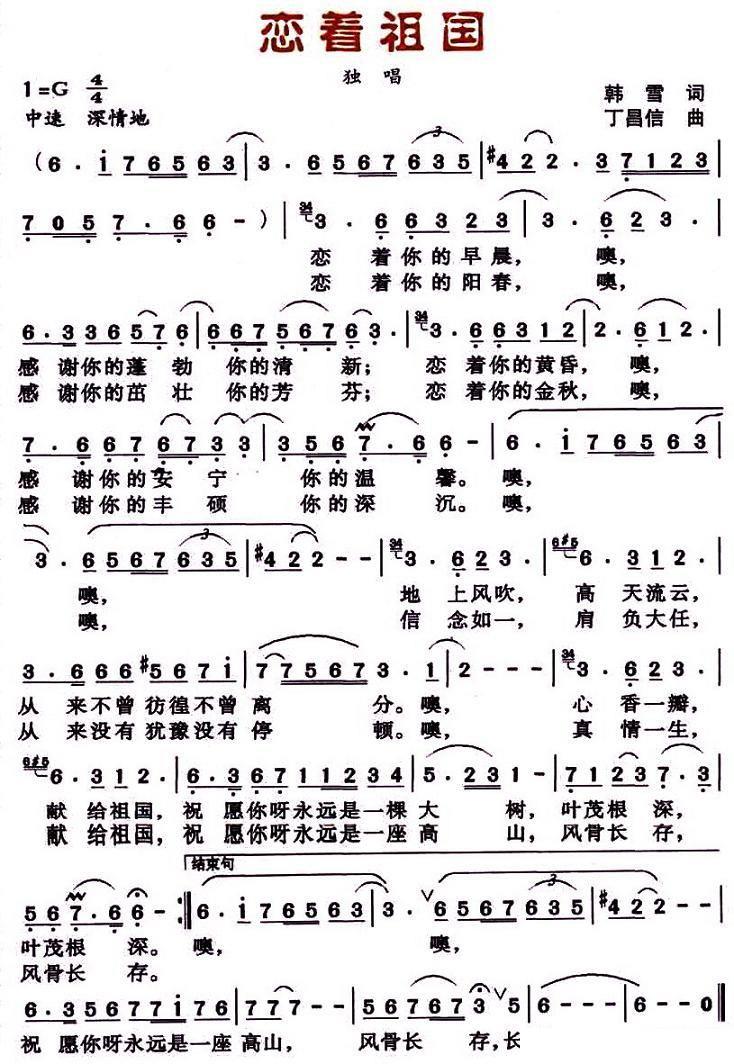 恋着祖国
独 唱
1=G 4/4
韩 雪 词
中速 深情地
丁昌信 曲
(6 . i 7 6 5 6 3 | 3 . 6 5 6 7 6 3 5 | #4 2 2 . 3 7 1 2 3 |
7 0 5 7 . 6 6 - ) | 3 . 6 6 3 2 3 | 3 . 6 2 3 . |
恋 着你的早晨, 噢,
恋 着你的阳春, 噢,
6 . 3 3 6 5 7 6 | 6 6 7 5 6 7 6 3 . | 3 . 6 6 3 1 2 | 2 . 6 1 2 . |
感 谢你的蓬 勃 你的清 新; 恋 着你的黄昏, 噢,
感 谢你的茁 壮 你的芳 芬; 恋 着你的金秋, 噢,
7 . 6 6 7 6 7 3 3 | 3 5 6 7 . 6 6 - | 6 . i 7 6 5 6 3 |
感 谢你的安 宁 你的温 馨。 噢,
感 谢你的丰 硕 你的深 沉。 噢,
3 . 6 5 6 7 6 3 5 | #4 2 2 - - | 3 . 6 2 3 . | 6 . 3 1 2 . |
噢, 地 上风吹, 高 天流云,
噢, 信 念如一, 肩 负大任,
3 . 6 6 6 #5 6 7 i | 7 7 5 6 7 3 . 1 | 2 - - - | 3 . 6 2 3 . |
从 来不曾 彷徨不曾 离 分。噢, 心 香一瓣,
从 来没有 犹豫没有 停 顿。噢, 真 情一生,
6 . 3 1 2 . | 6 . 3 6 7 1 1 2 3 4 | 5 . 2 3 1 | 7 1 2 3 7 . 3 |
献 给祖国, 祝 愿你呀永远是一棵 大 树, 叶茂根 深,
献 给祖国, 祝 愿你呀永远是一座 高 山, 风骨长 存,
结束句
5 6 7 . 6 6 - :| 6 . i 7 6 5 6 3 | 3 . 6 5 6 7 6 3 5 | #4 2 2 - - |
叶茂根 深。 噢, 噢,
风骨长 存。
6 . 3 5 6 7 7 i 7 6 | 7 7 7 - - | 5 6 7 6 7 3 5 | 6 - - - | 6 - - 0 ‖
祝 愿你呀永远是一座 高山, 风骨长 存,长